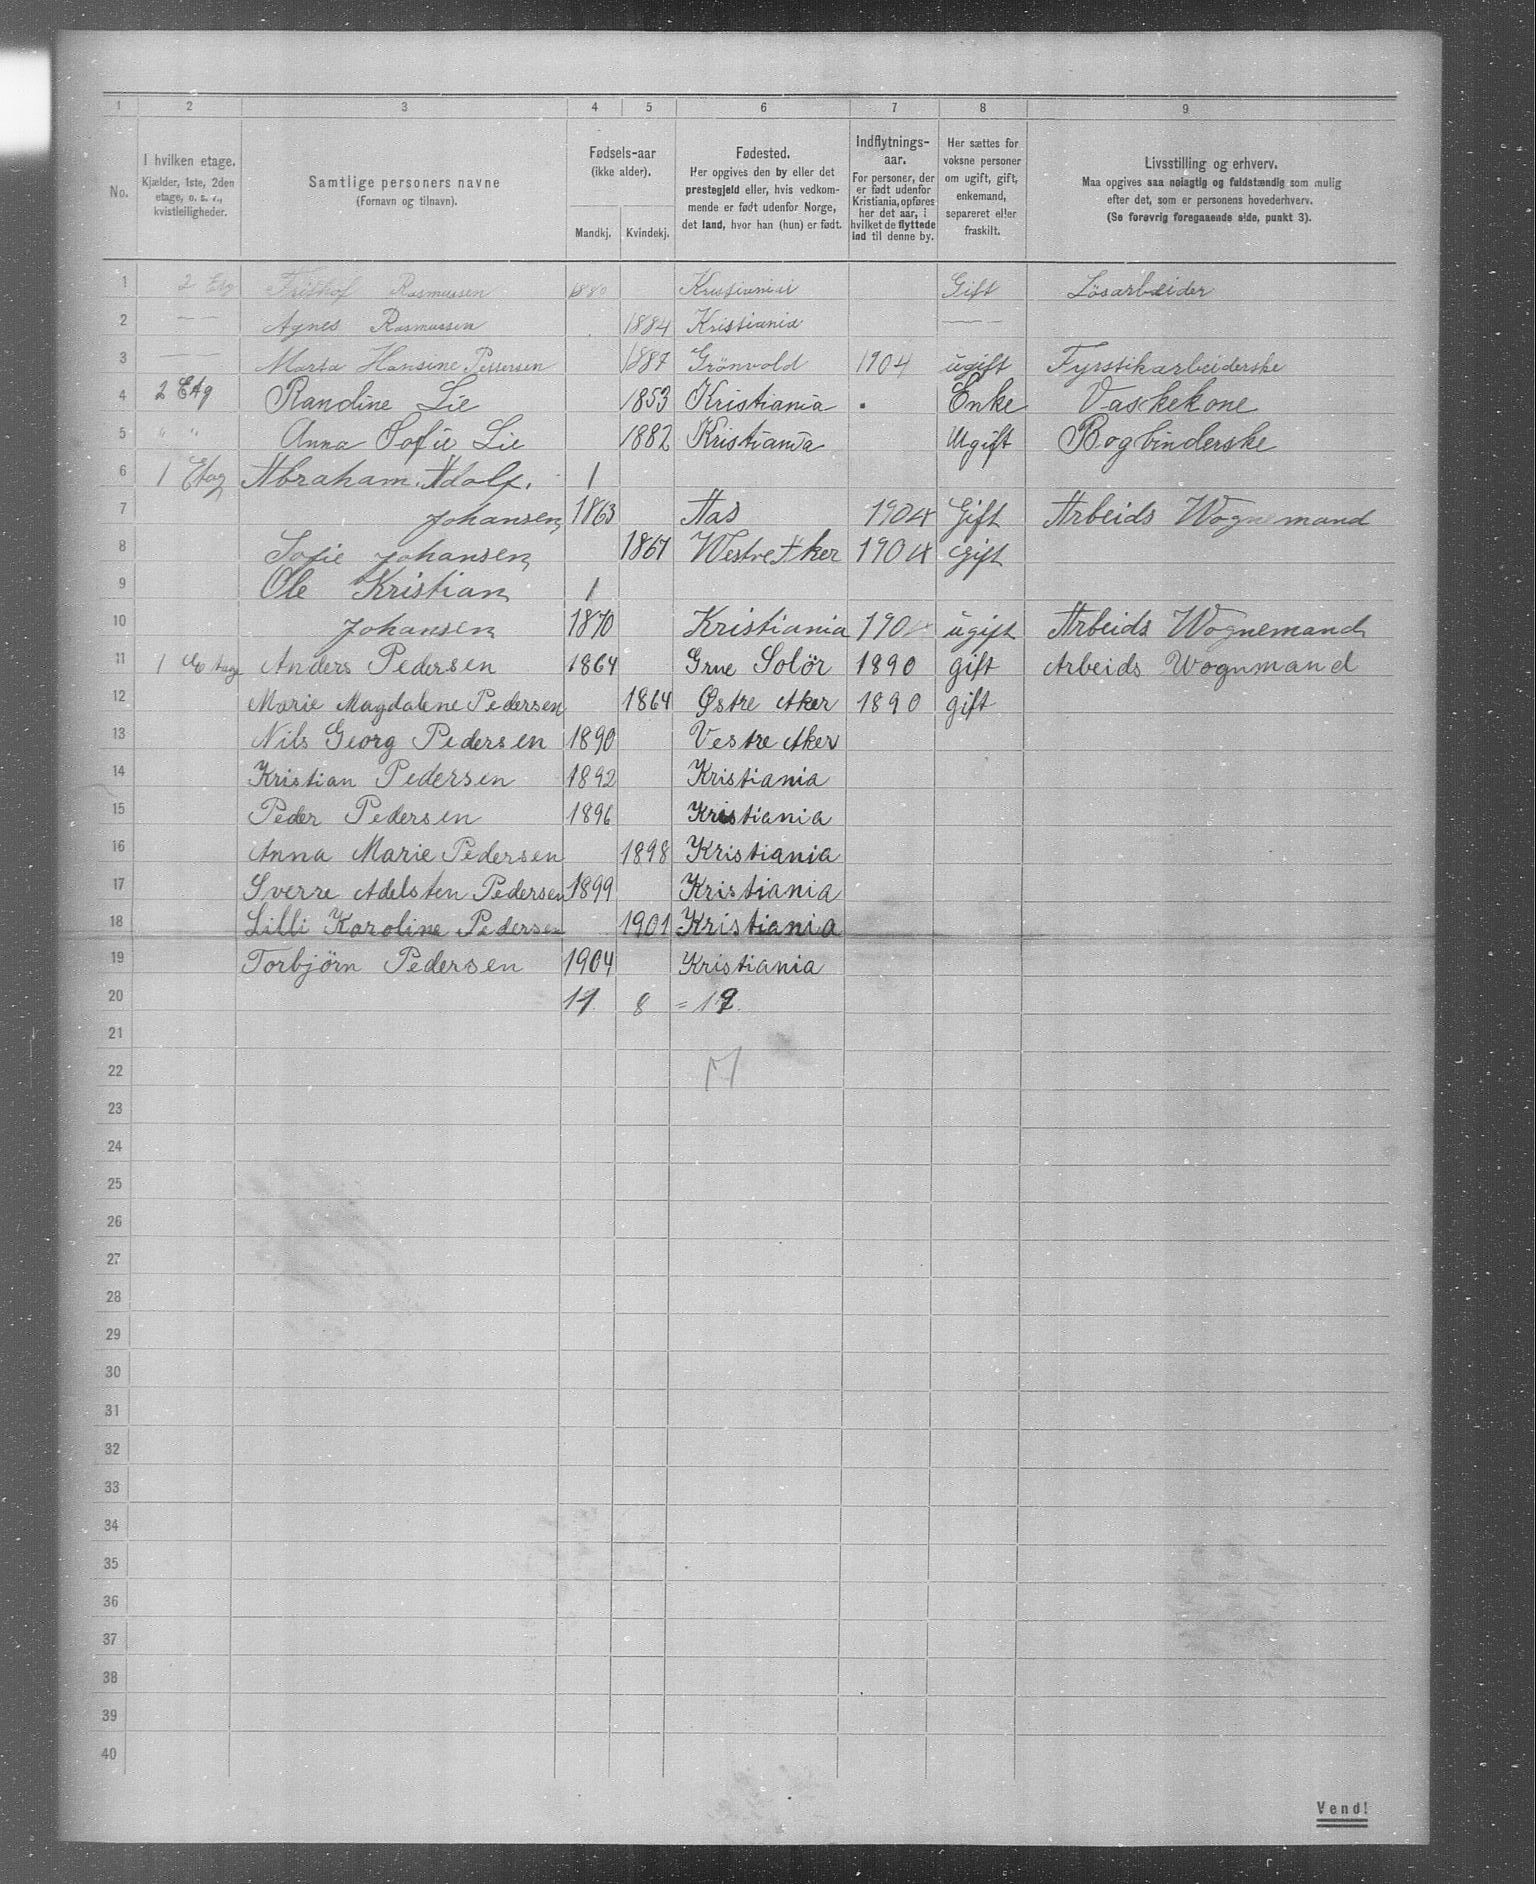 1 2 3 4 5 6 7 8 9
No.
I hvilken etage.
Kjælder, 1ste, 2den
etage, o. s. v.,
kvistleiligheder.
Samtlige personers navne
(Fornavn og tilnavn).
Fødsels-aar
(ikke alder).
Mandkj. Kvindekj.
Fødested.
Her opgives den by eller det
prestegjeld eller, hvis vedkom-
mende er født udenfor Norge,
det land, hvor han (hun) er født.
Indflytnings-
aar.
For personer, der
er født udenfor
Kristiania, opføres
her det aar, i
hvilket de flyttede
ind til denne by.
Her sættes for
voksne personer
om ugift, gift,
enkemand,
separeret eller
fraskilt.
Livsstilling og erhverv.
Maa opgives saa nøiagtig og fuldstændig som mulig
efter det, som er personens hovederhverv.
(Se forøvrig foregaaende side, punkt 3).
1 2 Etg Frithof Rasmussen 1880 Kristiania Gift Løsarbeider
2 — — Agnes Rasmussen 1884 Kristiania — —
3 — — Marta Hansine 1887 Grönvold 1904 ugift Fyrstikarbeiderske
4 2 Etg Randine Lie 1853 Kristiania . Enke Vaskekone
5 " " Anna Sofie Lie 1882 Kristiania Ugift Bogbinderske
6 1 Etag Abraham Adolf. 1
7 Johansen 1863 Aas 1904 Gift Arbeids Wognemand
8 Sofie Johansen 1867 Westre Aker 1904 gift
9 Ole Kristian 1
10 Johansen 1870 Kristiania 1904 ugift Arbeids Wognemand
11 1 Anders Pedersen 1864 Grue Solör 1890 gift Arbeids Wognmand
12 Marie Magdalene Pedersen 1864 Østre Aker 1890 gift
13 Nils Georg Pedersen 1890 Vestre Aker
14 Kristian Pedersen 1892 Kristiania
15 Peder Pedersen 1896 Kristiania
16 Anna Marie Pedersen 1898 Kristiania
17 Sverre Adelsten Pedersen 1899 Kristiania
18 Lilli Karoline Pedersen 1901 Kristiania
19 Torbjörn Pedersen 1904 Kristiania
20 8 =
21
22
23
24
25
26
27
28
29
30
31
32
33
34
35
36
37
38
39
40
Vend!